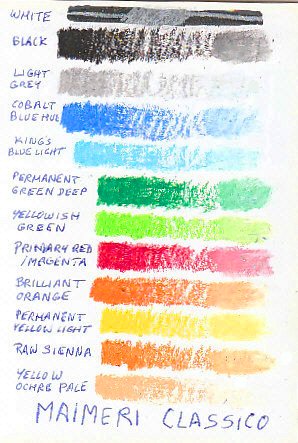 WHITE
BLACK
LIGHT
GREY
COBALT
BLUE HUE
KINGS
BLUE LIGHT
PERMANENT
GREEN DEEP
YELLOWISH
GREEN
PRIMARY RED
/MAGENTA
BRILLIANT
ORANGE
PERMANENT
YELLOW LIGHT
RAW SIENNA
YELLOW
OCHRE PALE
MAIMERI CLASSICO